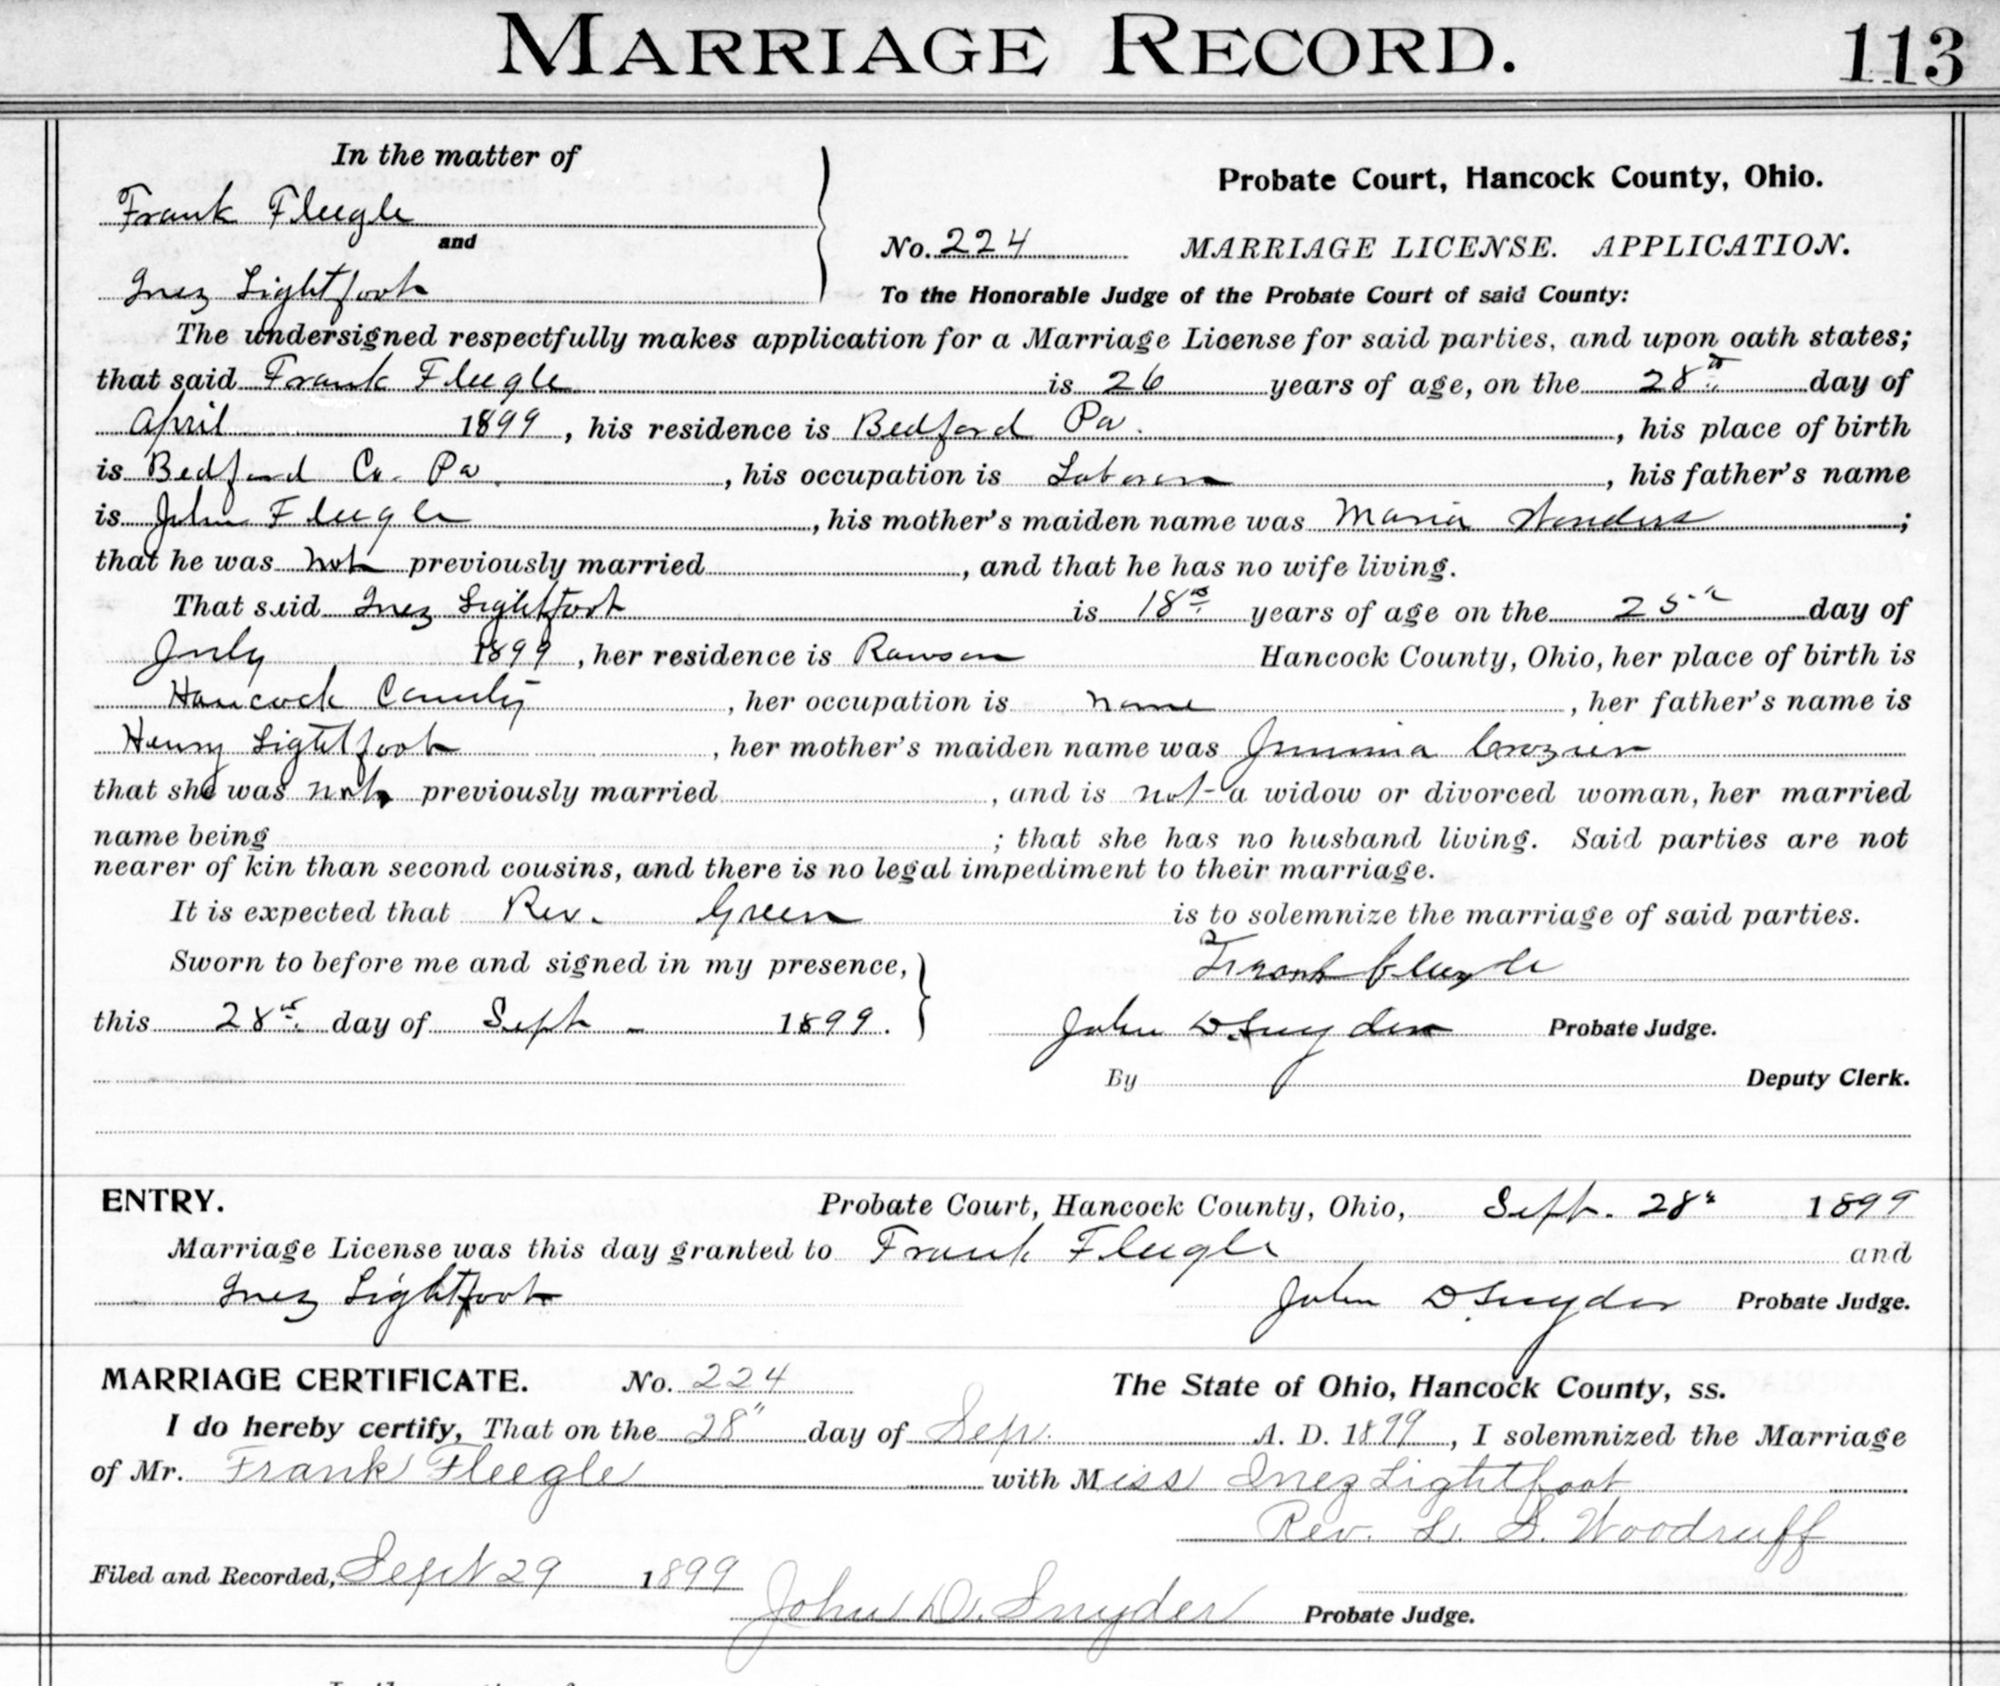 MARRIAGE RECORD. 113
In the matter of
Frank Fleegle
and
Inez Lightfoot
Probate Court, Hancock County, Ohio.
No. 224 MARRIAGE LICENSE. APPLICATION.
To the Honorable Judge of the Probate Court of said County:
The undersigned respectfully makes application for a Marriage License for said parties, and upon oath states;
that said Frank Fleegle is 26 years of age, on the 28th day of
April 1899, his residence is Bedford Pa. , his place of birth
is Bedford Co. Pa. , his occupation is Laborer , his father's name
is John Fleegle , his mother's maiden name was Maria Wonders ;
that he was not previously married , and that he has no wife living.
That said Inez Lightfoot is 18 years of age on the 25th day of
July 1899 , her residence is Rawson Hancock County, Ohio, her place of birth is
Hancock County , her occupation is none , her father's name is
Henry Lightfoot , her mother's maiden name was Jemima Crozier
that she was not previously married , and is not a widow or divorced woman, her married
name being ; that she has no husband living. Said parties are not
nearer of kin than second cousins, and there is no legal impediment to their marriage.
It is expected that Rev. Green is to solemnize the marriage of said parties.
Sworn to before me and signed in my presence, Frank Fleegle
this 28th day of Sept 1899. John D. Snyder Probate Judge.
By Deputy Clerk.
ENTRY. Probate Court, Hancock County, Ohio, Sept. 28" 1899
Marriage License was this day granted to Frank Fleegle and
Inez Lightfoot John D. Snyder Probate Judge.
MARRIAGE CERTIFICATE. No. 224 The State of Ohio, Hancock County, ss.
I do hereby certify, That on the 28" day of Sep. A. D. 1899 , I solemnized the Marriage
of Mr. Frank Fleegle with Miss Inez Lightfoot
Rev. L. S. Woodruff
Filed and Recorded, Sept 29 1899
John D. Snyder Probate Judge.